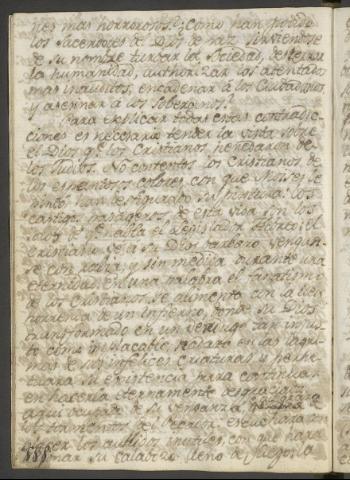 nes mas horrorosos? ¿Como han podido
los Sacerdotes de Dios de paz sirviendose
de su nombre turbar la Sociedad, destruir
la humanidad, authorizar los atentados
mas inauditos, encadenar á los Ciudadanos,
y asesinar á los Soberanos?
Para explicar todas estas contradic-
ciones es necesario tender la vista sobre
el Dios qe. los Cristianos heredaron de
los Judios. No contentos los Cristianos de
los espantosos colores con que Moises le
pintó han desfigurado su pintura: los
castigos pasageros de esta vida son los
solos de qe. habla el Legislador Hebreo: el
Cristiano ve a su Dios barbaro vengan-
se con rabia y sin medida durante una
eternidad: en una palabra el fanatismo
de los Cristianos se aumenta con la idea
horrenda de un Infierno, donde su Dios
transformado en un Verdugo tan injus-
to como implacable, se gozará en las lagri-
mas de sus infelices criaturas, y perpe-
tuara su existencia para continuar
en hacerla eternamente desgraciada
aqui ocupado de su venganza, gozará
de los tormentos del Pecador, escuchara con
placer los aullidos inutiles, con que hará
su calabozo lleno de fuego. La